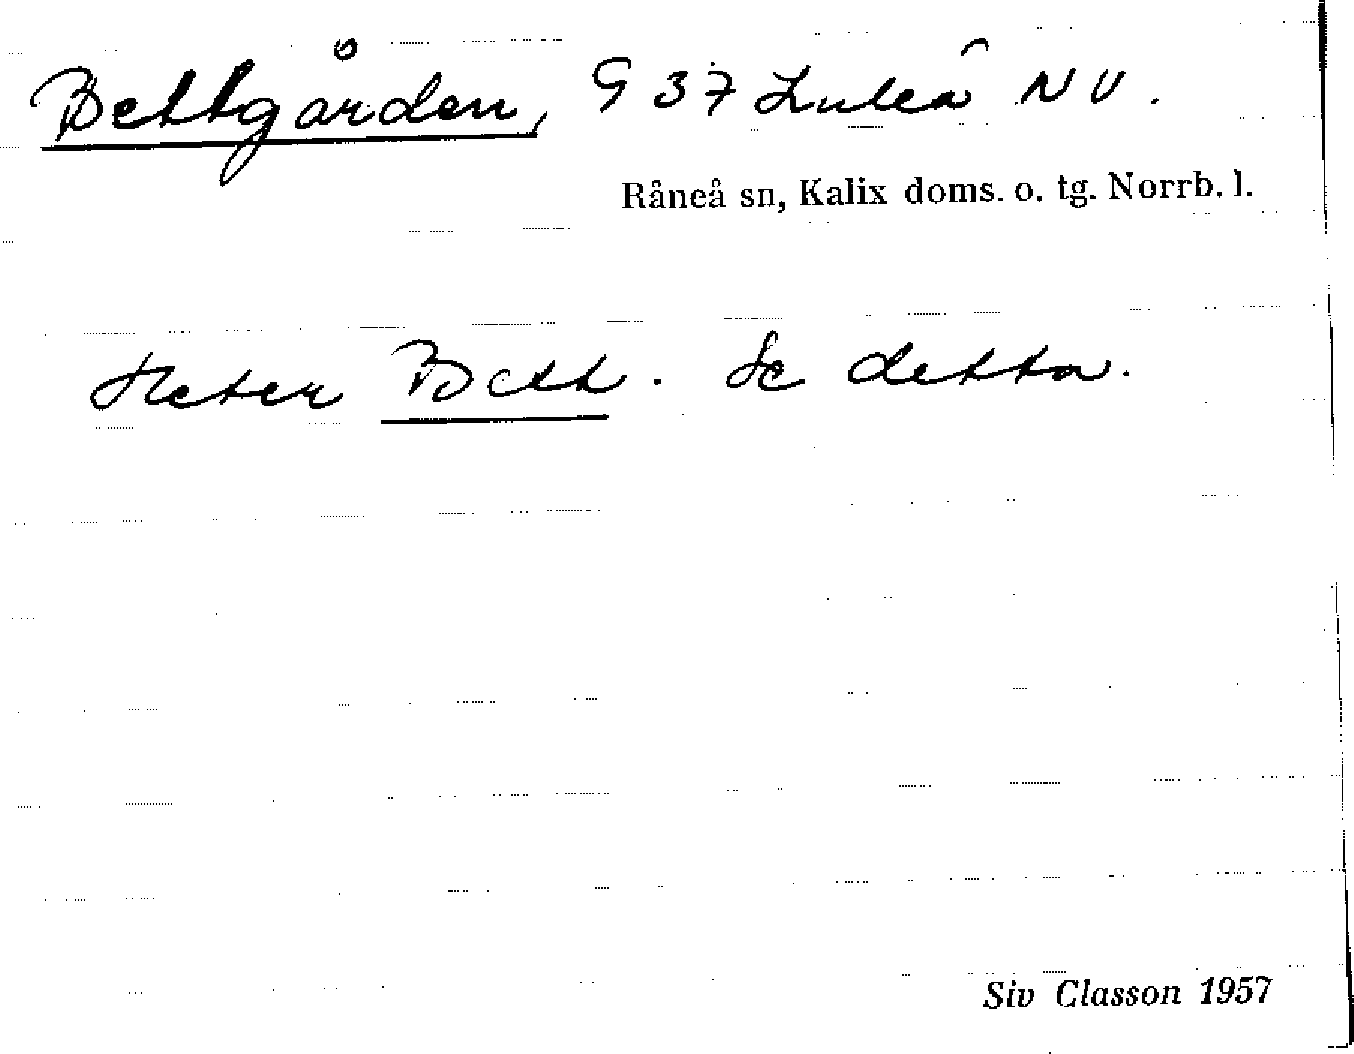 Bettgården, G 37 Luleå NV.
Råneå sn, Kalix doms. o. tg. Norrb. l.
Heter Bett. Se detta.
Siv Classon 1957